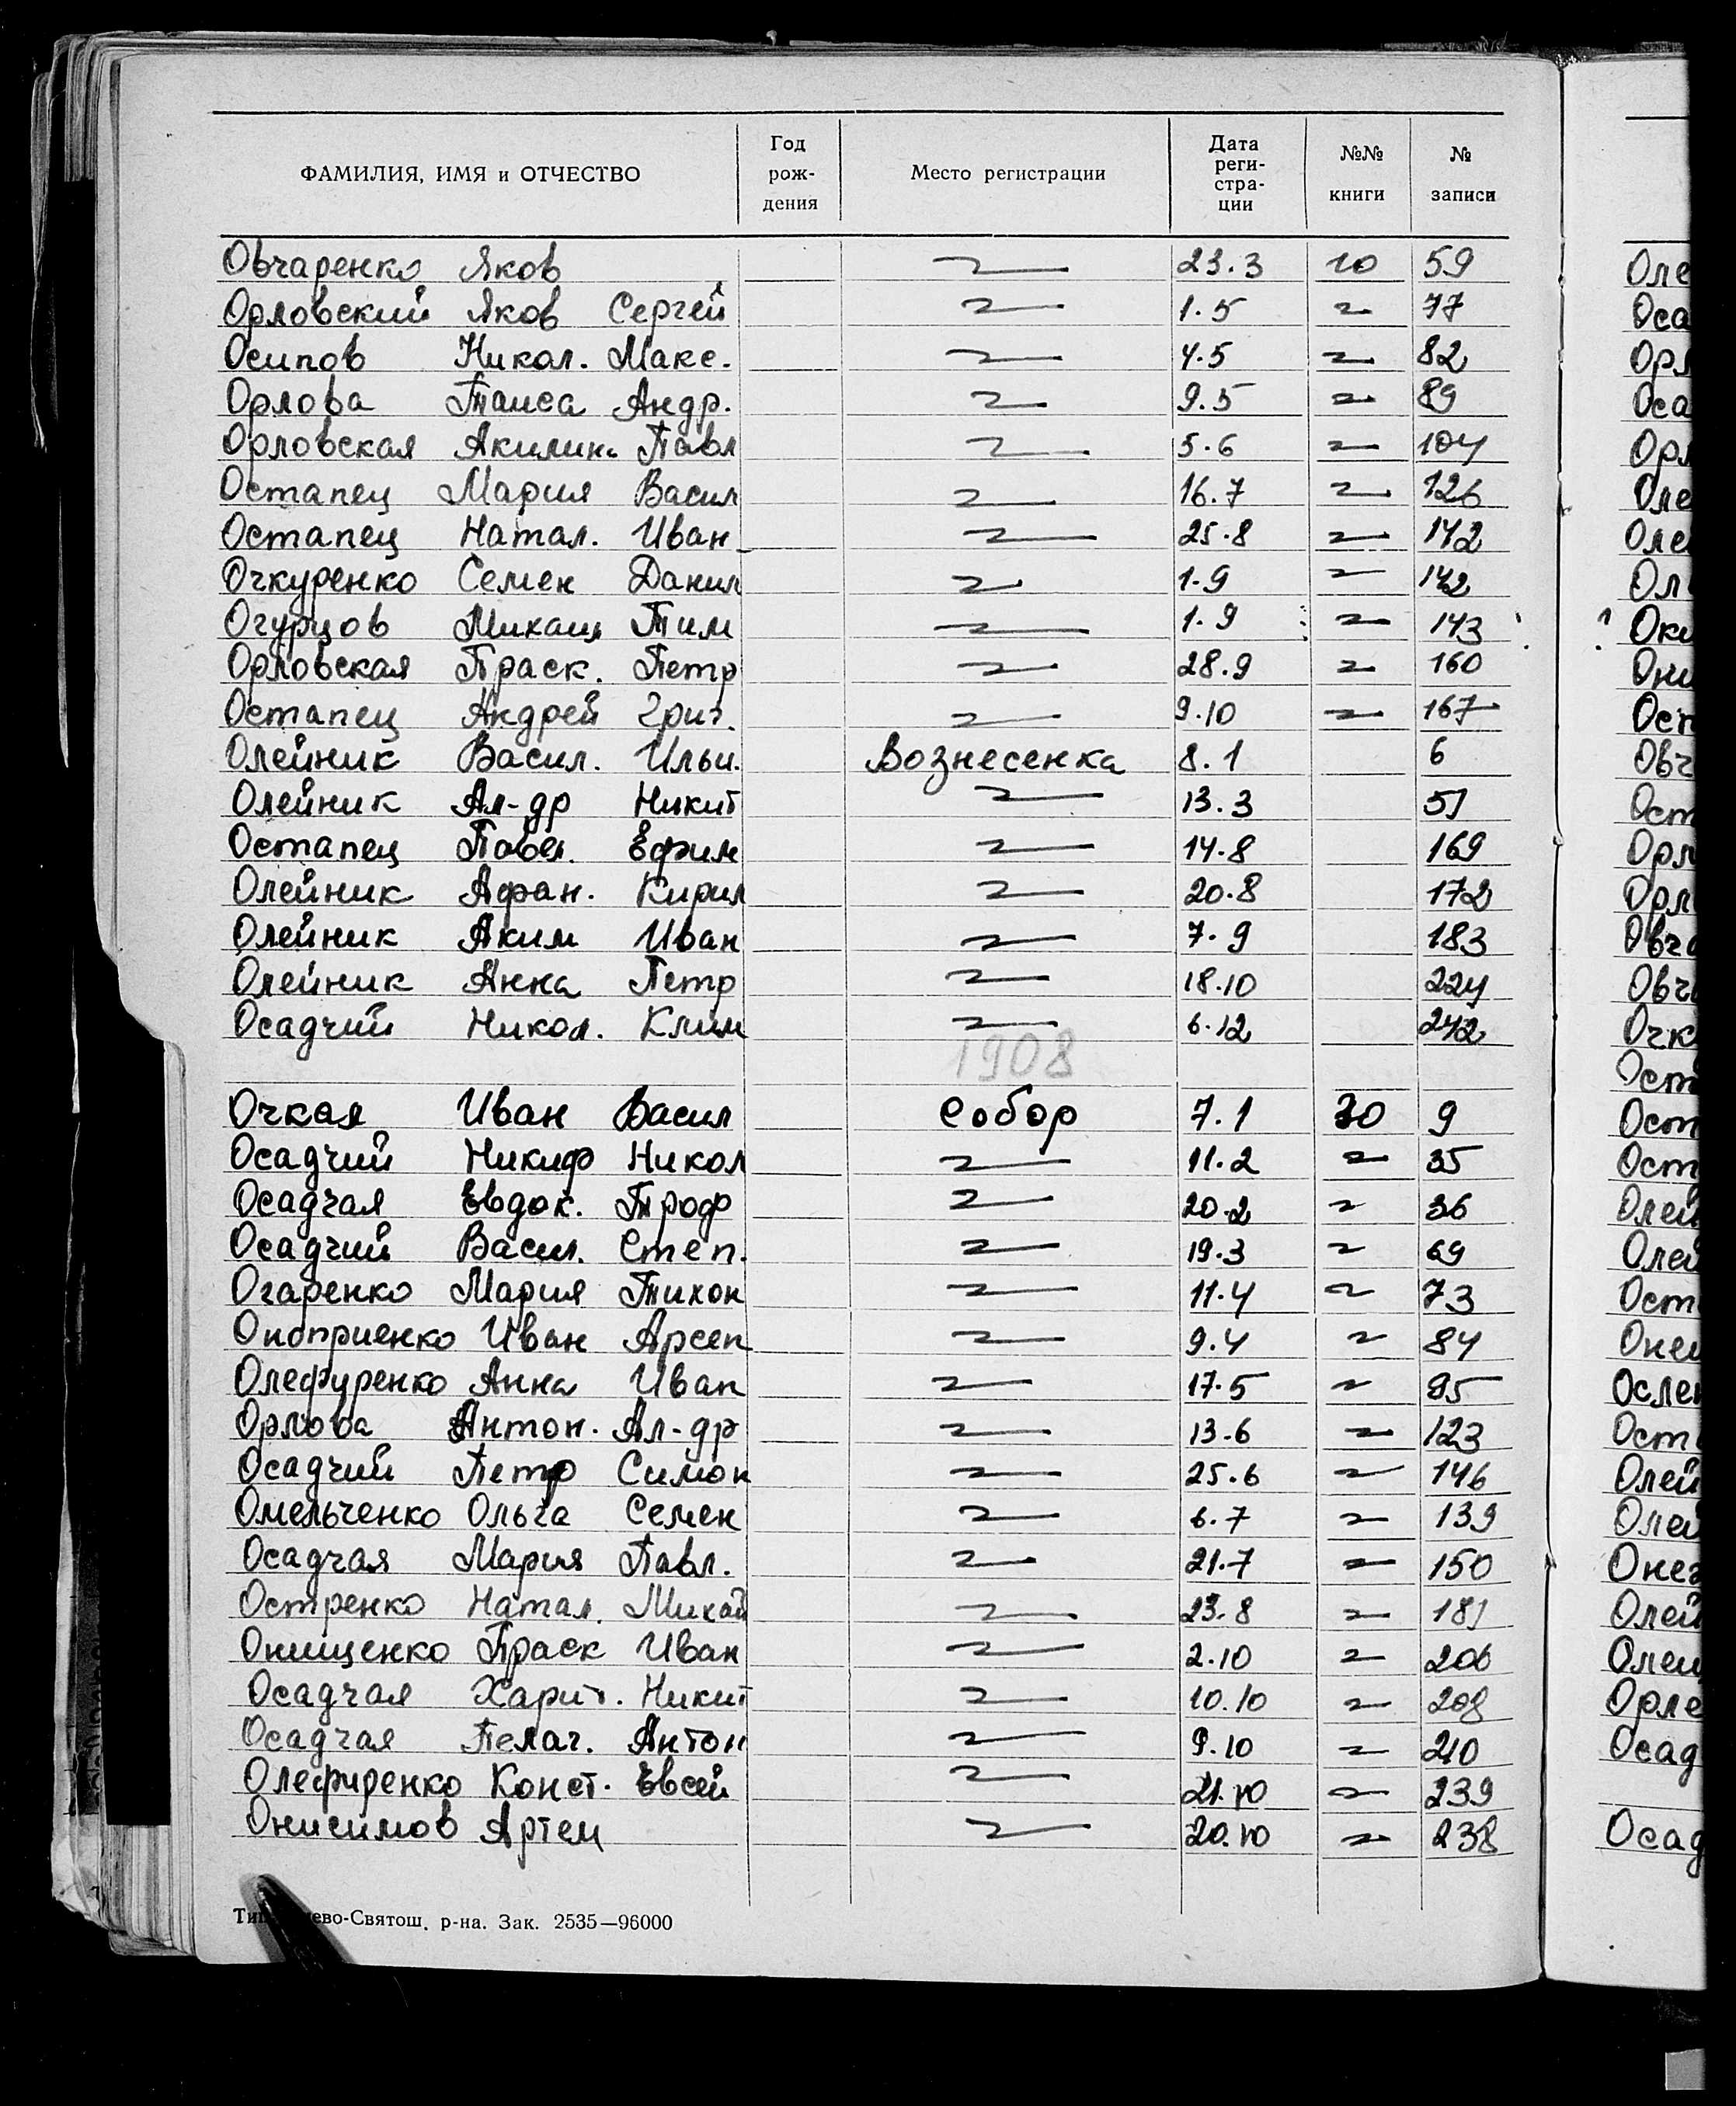 ФАМИЛИЯ, ИМЯ и ОТЧЕСТВО Год рождения Место регистрации Дата регистрации №№ книги № записи
Овчаренко Яков 23.3 10 59
Орловский Яков Сергей 1.5 77
Осипов Никол. Макс. 4.5 82
Орлова Таиса Андр. 9.5 89
Орловская Акилина Павл 5.6 104
Остапец Мария Васил 16.7 126
Остапец Натал. Иван 25.8 142
Очкуренко Семен Данил 1.9 142
Огурцов Михаил Тим 1.9 143
Орловская Праск. Петр 28.9 160
Остапец Андрей Григ. 9.10 167
Олейник Васил. Ильи. Вознесенка 8.1 6
Олейник Ал-др Никит 13.3 51
Остапец Павел. Ефим 14.8 169
Олейник Афан. Кирил 20.8 172
Олейник Аким Иван 7.9 183
Олейник Анна Петр 18.10 224
Осадчий Никол. Клим 6.12 242
1908
Очкая Иван Васил Собор 7.1 30 9
Осадчий Никиф Никол 11.2 35
Осадчая Евдок. Троф 20.2 36
Осадчий Васил. Степ. 19.3 69
Огаренко Мария Тихон 11.4 73
Оноприенко Иван Арсен 9.4 84
Олефуренко Анна Иван 17.5 95
Орлова Антон. Ал-др 13.6 123
Осадчий Петр Симон 25.6 146
Омельченко Ольга Семен 6.7 139
Осадчая Мария Павл. 21.7 150
Остренко Натал. Михай 23.8 181
Онищенко Праск Иван 2.10 206
Осадчая Харит. Никит 10.10 208
Осадчая Пелаг. Антон 9.10 210
Олефиренко Конст. Евсей 21.10 239
Онисимов Артем 20.10 238
ево-Святош. р-на. Зак. 2535—96000